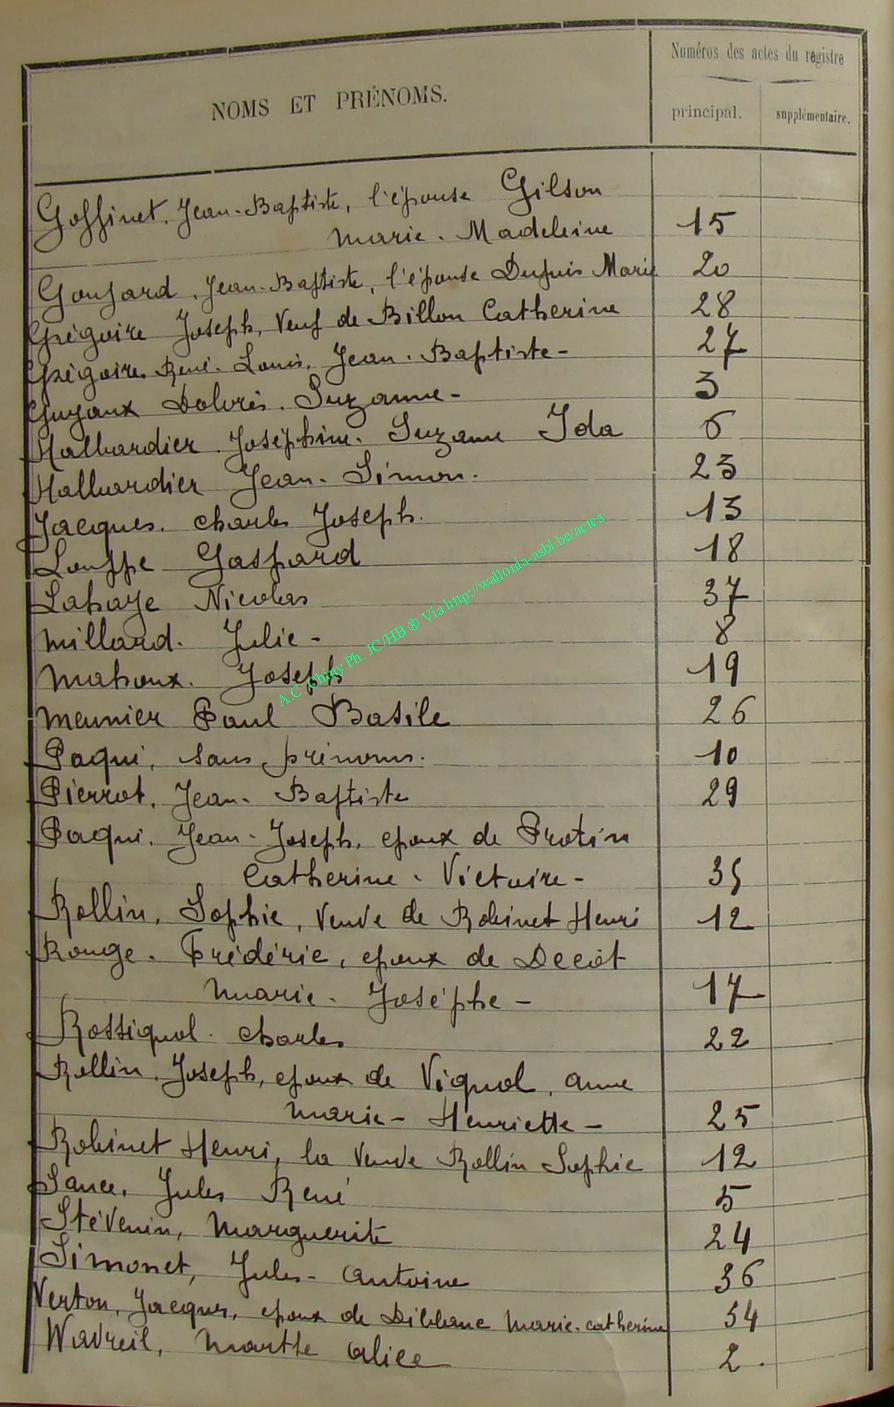 Numéros des actes du registre
NOMS ET PRÉNOMS.
principal. supplémentaire.
Goffinet. Jean-Baptiste, l'épouse Gilson
Marie. Madeleine 15
Goujard. Jean-Baptiste, l'épouse Dupuis Marie 20
Grégoire Joseph, Veuf de Billon Catherine 28
Grégoire René. Louis. Jean. Baptiste- 27
Guyaux Dolorès. Suzanne- 3
Halbardier Joséphine. Suzanne Ida 6
Halbardier Jean. Simon. 23
Jacques. Charles Joseph. 13
Louppe Gaspard 18
Lahaye Nicolas 37
Millard. Julie- 8
Mahoux. Joseph 19
Meunier Paul Basile 26
Paqui, sans prénoms. 10
Pierrot, Jean-Baptiste 29
Paqui. Jean-Joseph, époux de Protin
Catherine-Victoire- 35
Rollin, Sophie, Veuve de Robinet Henri 12
Rouge. Frédéric, époux de Decôt
Marie-Josèphe- 17
Rossignol. Charles 22
Rollin. Joseph, époux de Vignol, Anne
Marie-Henriette- 25
Robinet Henri, la Veuve Rollin Sophie 12
Jules René 5
Stévenin, Marguerite 24
Simonet, Jules-Antoine 36
Verton, Jacques, époux de Marie-Catherine 34
Wavreil, Marthe Alice 2.
A.C .Chiny Ph. JC/HB ® Via http://wallonia-asbl.be/actes